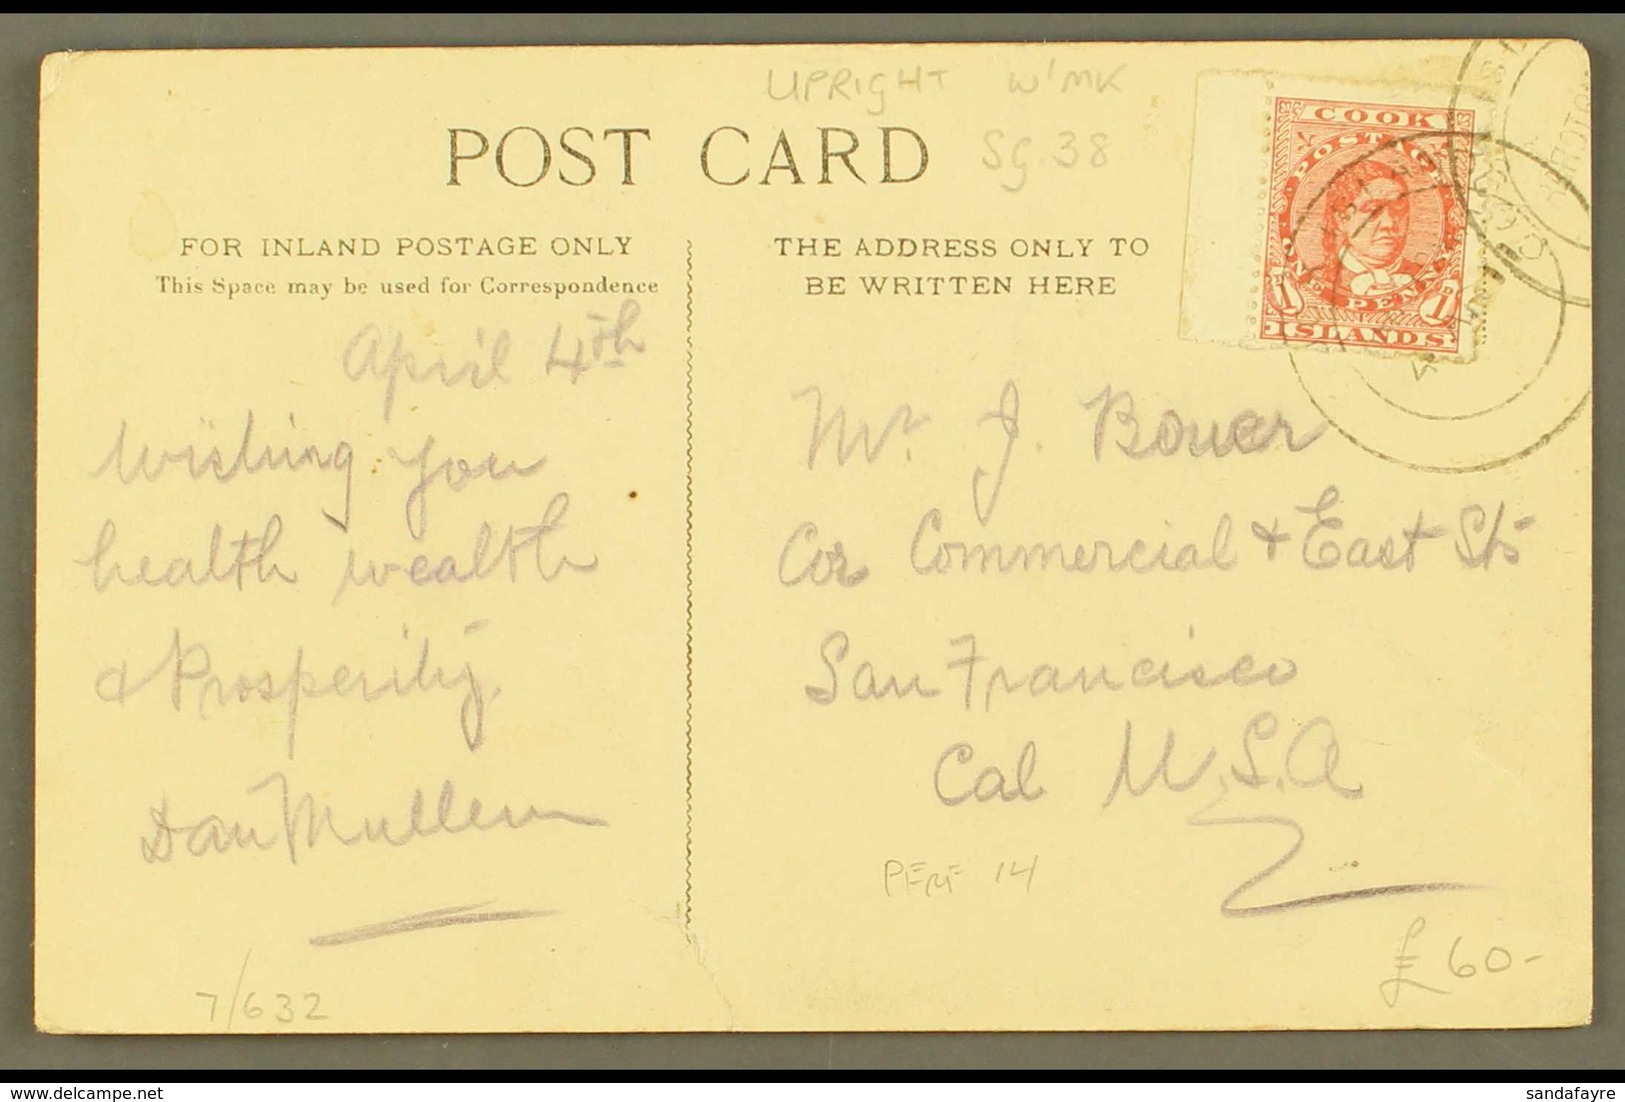 UPRIGHT W'MK
SG.38
POST CARD
FOR INLAND POSTAGE ONLY
This Space may be used for Correspondence
THE ADDRESS ONLY TO
BE WRITTEN HERE
COOK
POSTAGE
ONE PENNY
1D 1D
ISLANDS
April 4th
Wishing you
health wealth
& Prosperity.
Dan Mullem
Mr. J. Bouer
Cor Commercial & East Sts
San Francisco
Cal U.S.A
PERF 14
£60-
7/632
Delcampe.net
sandafayre